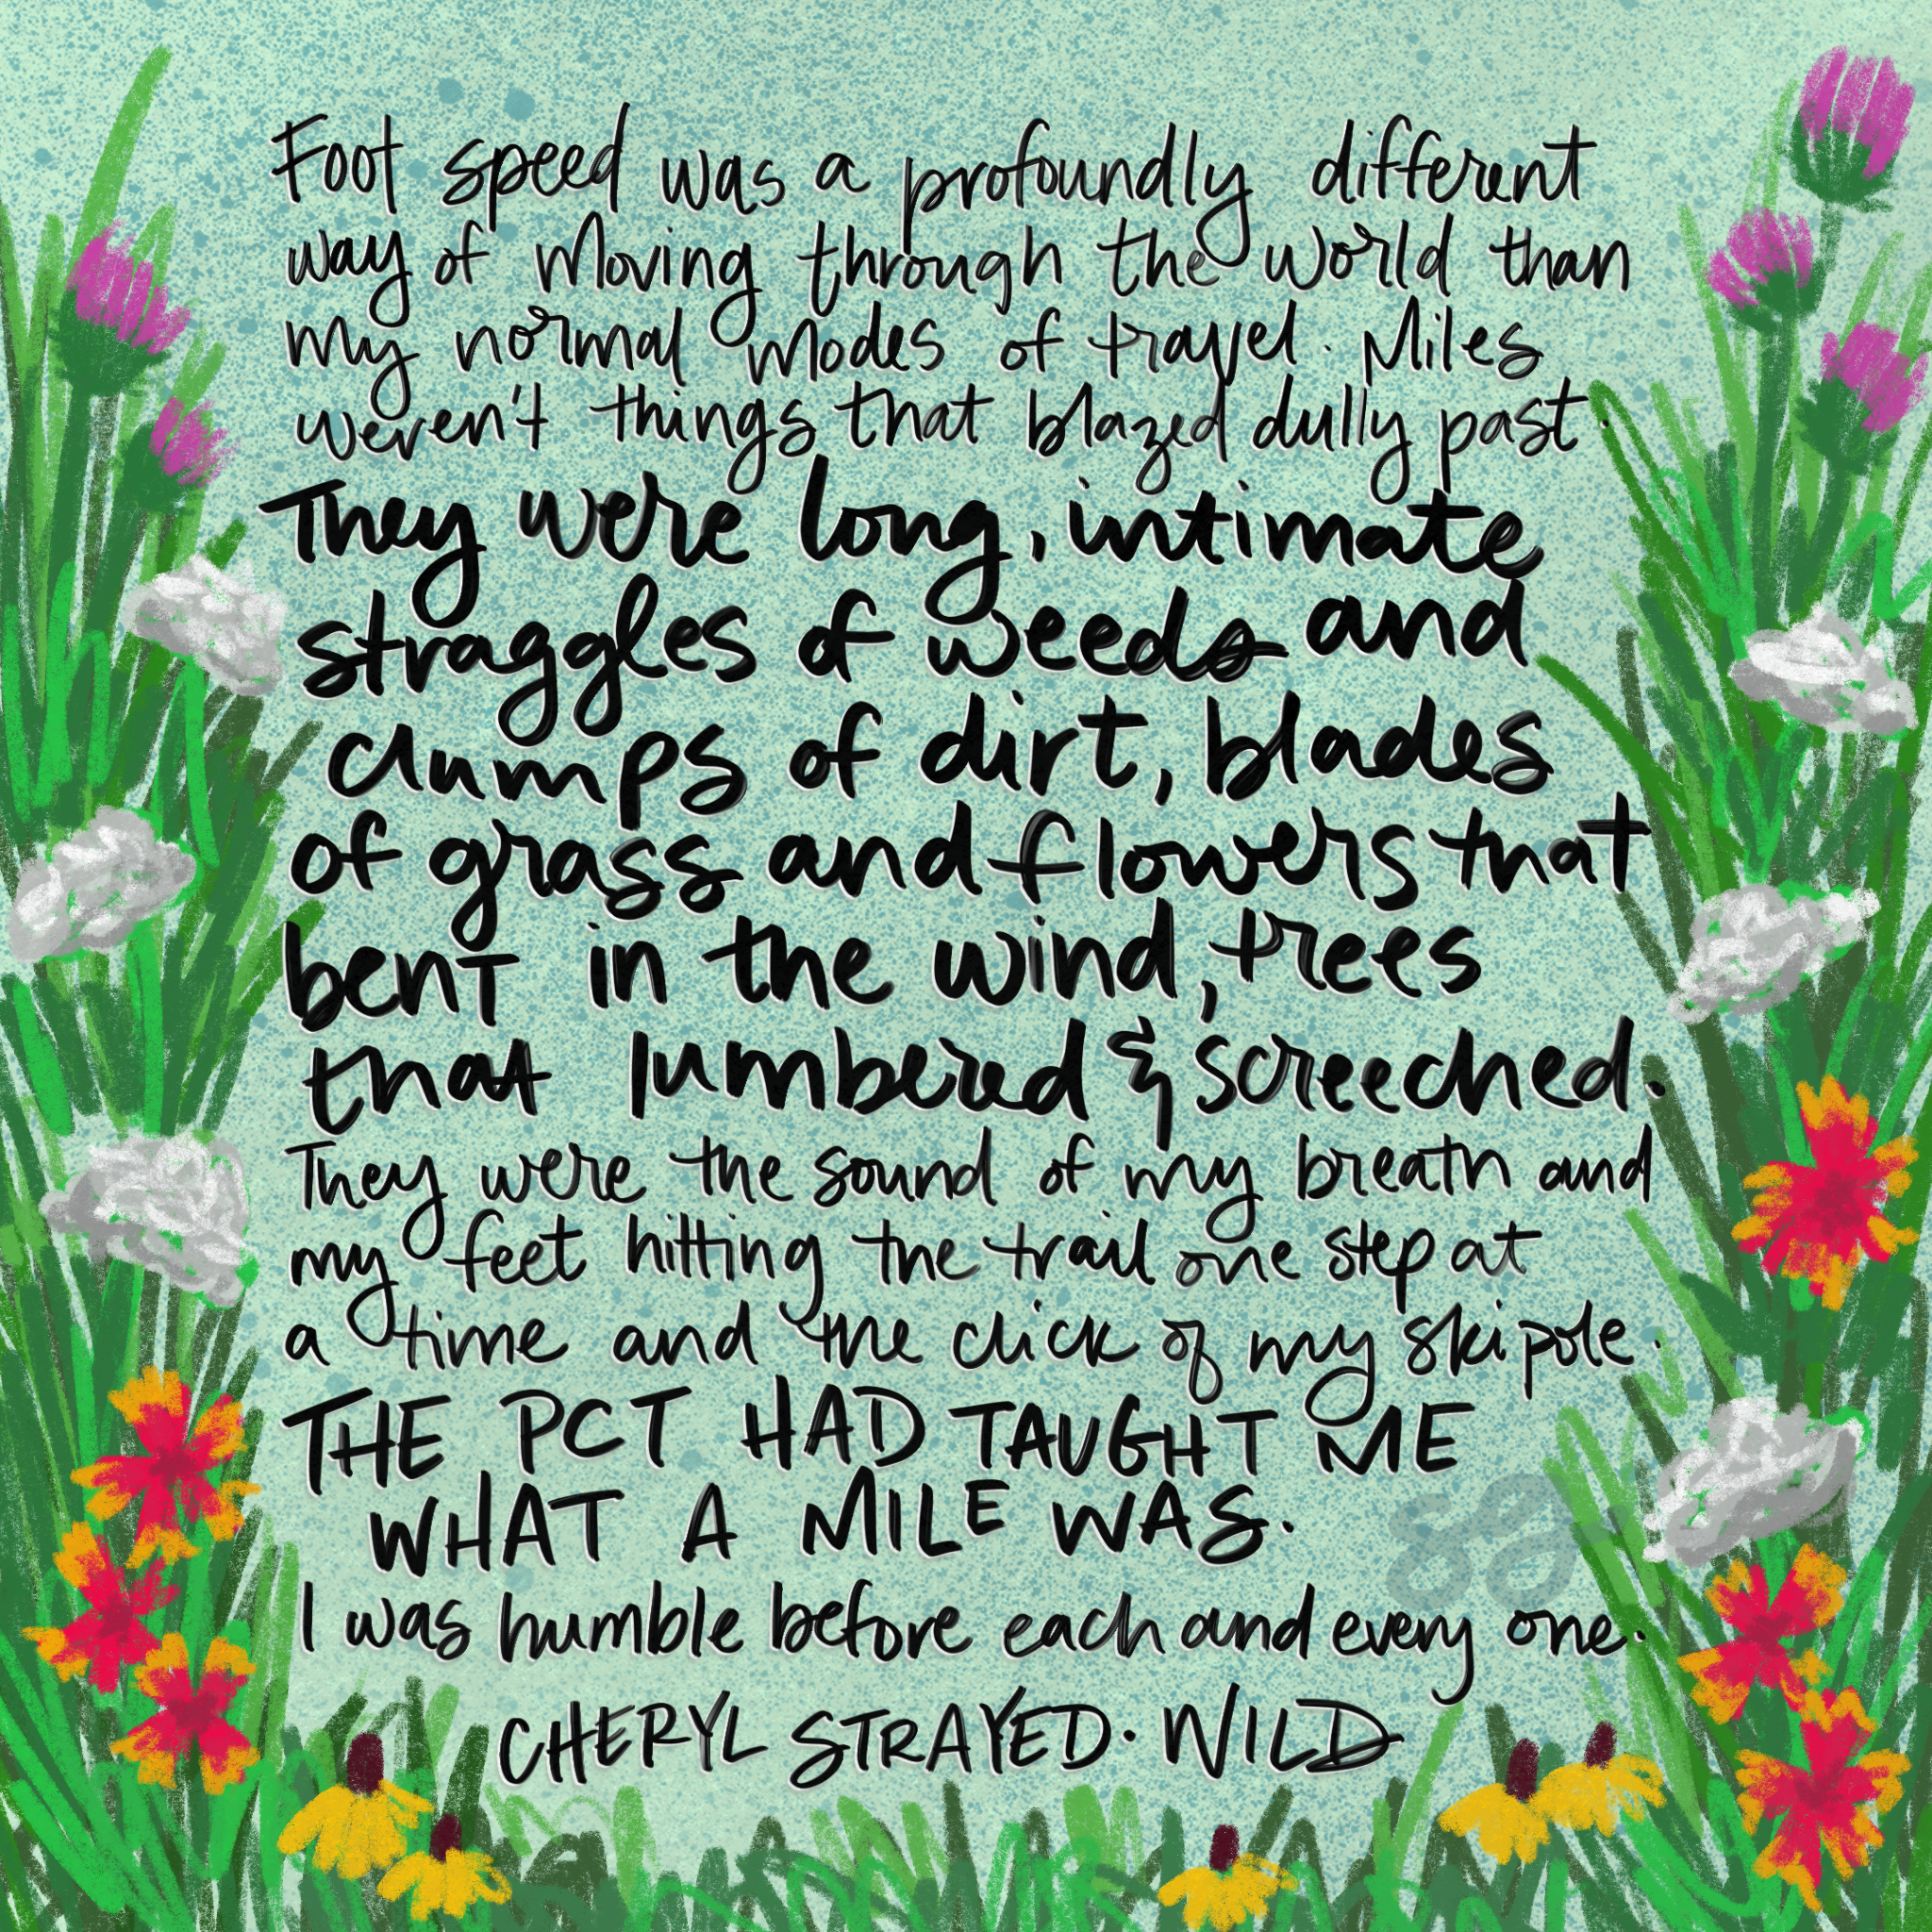 Foot speed was a profoundly different
way of moving through the world than
my normal modes of travel. Miles
weren't things that blazed dully past.
They were long, intimate
straggles of weeds and
clumps of dirt, blades
of grass and flowers that
bent in the wind, trees
that lumbered & screeched.
They were the sound of my breath and
my feet hitting the trail one step at
a time and the click of my ski pole.
THE PCT HAD TAUGHT ME
WHAT A MILE WAS.
I was humble before each and every one.
CHERYL STRAYED · WILD